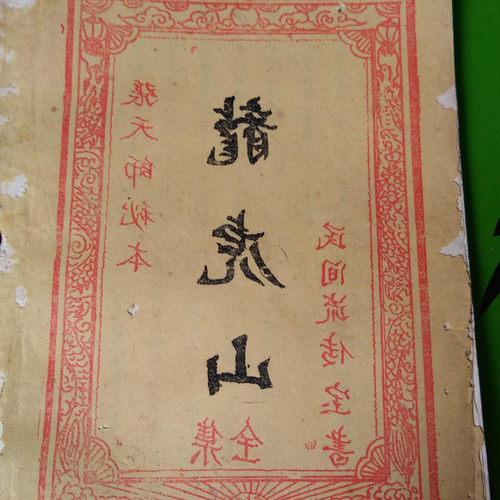 張天師秘本
龍虎山
全集
民间流传全書